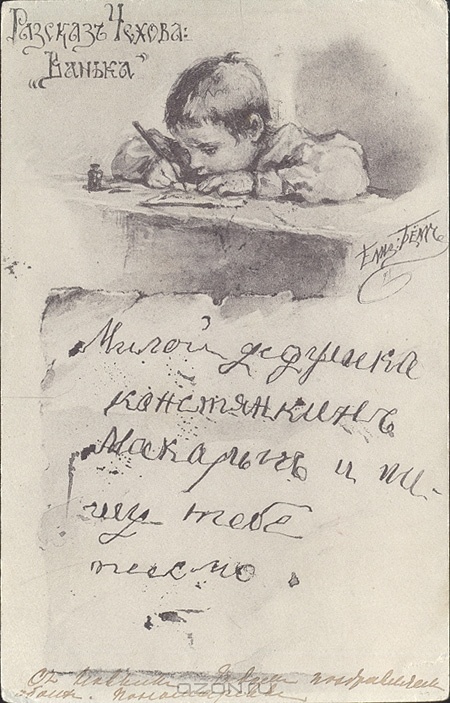 Разсказъ Чехова:
„Ванька"
Елиз: Бёмъ
Милой дѣдушка
констянкинъ
Макарычь и пи-
шу тебе
писмо.
Съ Новымъ Годом поздравляем
ozon.ru